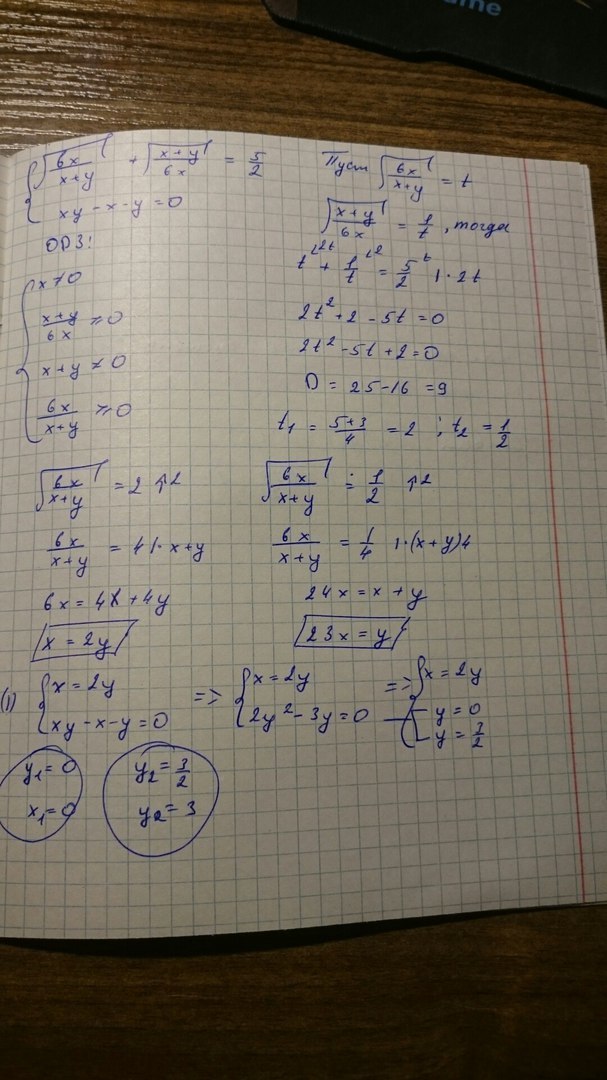 ume
{ √(6x/(x+y)) + √((x+y)/6x) = 5/2
xy - x - y = 0
ОДЗ:
{ x ≠ 0
(x+y)/6x ≥ 0
x + y ≠ 0
6x/(x+y) ≥ 0
Пуст √(6x/(x+y)) = t
√((x+y)/6x) = 1/t , тогда
t^{2t} + 1/t^{2} = 5/2^{t} |·2t
2t² + 2 - 5t = 0
2t² - 5t + 2 = 0
D = 25 - 16 = 9
t₁ = (5+3)/4 = 2 ; t₂ = 1/2
√(6x/(x+y)) = 2 ↑2
6x/(x+y) = 4 |· x+y
6x = 4x + 4y
x = 2y
√(6x/(x+y)) = 1/2 ↑2
6x/(x+y) = 1/4 |·(x+y)4
24x = x + y
23x = y
(1) { x = 2y => { x = 2y => { x = 2y
xy - x - y = 0 2y² - 3y = 0 [ y = 0
y = 3/2
y₁ = 0 y₂ = 3/2
x₁ = 0 y₂ = 3